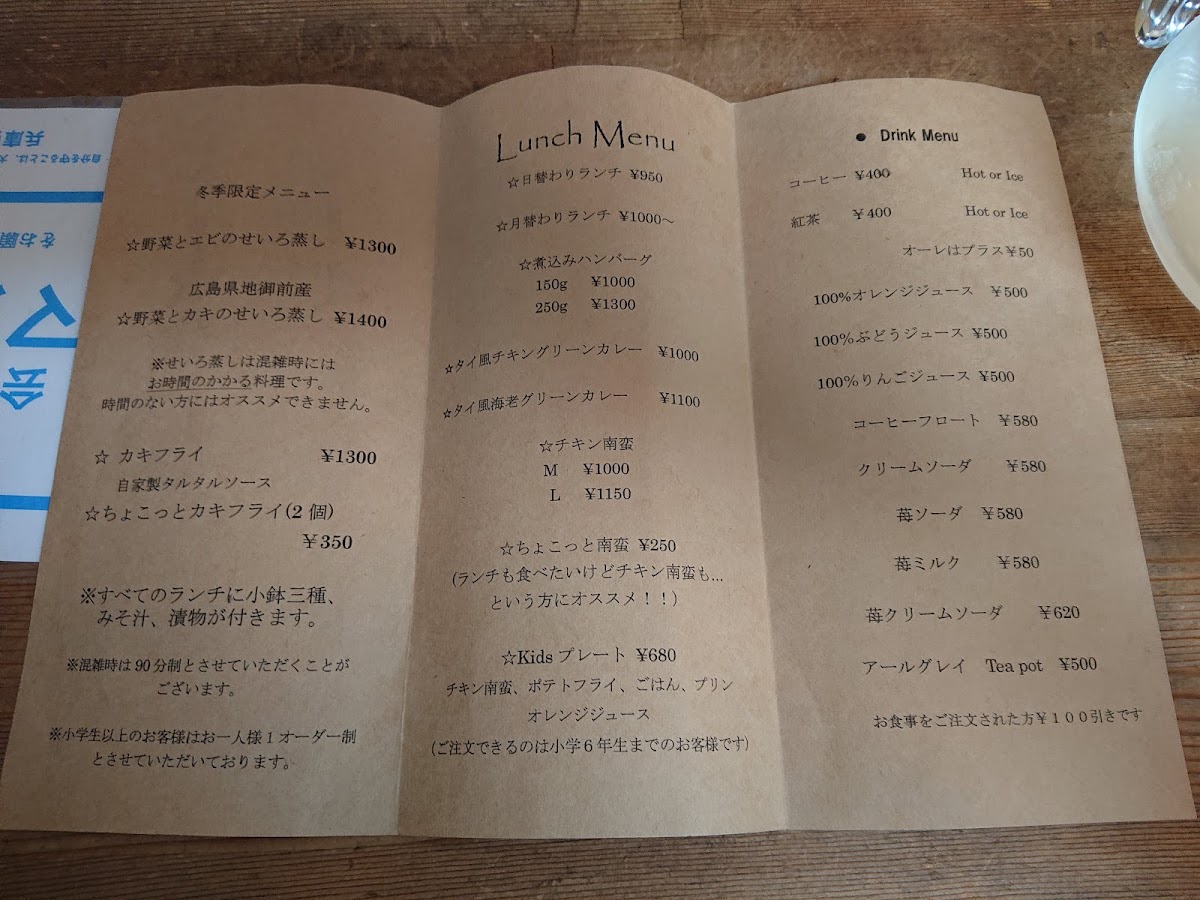 冬季限定メニュー
☆野菜とエビのせいろ蒸し ¥1300
広島県地御前産
☆野菜とカキのせいろ蒸し ¥1400
※せいろ蒸しは混雑時には
お時間のかかる料理です。
時間のない方にはオススメできません。
☆ カキフライ ¥1300
自家製タルタルソース
☆ちょこっとカキフライ(2 個)
¥350
※すべてのランチに小鉢三種、
みそ汁、漬物が付きます。
※混雑時は 90 分制とさせていただくことが
ございます。
※小学生以上のお客様はお一人様 1 オーダー制
とさせていただいております。
Lunch Menu
☆日替わりランチ ¥950
☆月替わりランチ ¥1000～
☆煮込みハンバーグ
150g ¥1000
250g ¥1300
☆タイ風チキングリーンカレー ¥1000
☆タイ風海老グリーンカレー ¥1100
☆チキン南蛮
M ¥1000
L ¥1150
☆ちょこっと南蛮 ¥250
(ランチも食べたいけどチキン南蛮も...
という方にオススメ！！)
☆Kids プレート ¥680
チキン南蛮、ポテトフライ、ごはん、プリン
オレンジジュース
(ご注文できるのは小学６年生までのお客様です)
● Drink Menu
コーヒー ¥400 Hot or Ice
紅茶 ¥400 Hot or Ice
オーレはプラス¥50
100%オレンジジュース ¥500
100%ぶどうジュース ¥500
100%りんごジュース ¥500
コーヒーフロート ¥580
クリームソーダ ¥580
苺ソーダ ¥580
苺ミルク ¥580
苺クリームソーダ ¥620
アールグレイ Tea pot ¥500
お食事をご注文された方¥１００引きです
兵庫
自分を守ることは、大
をお願
マ
会